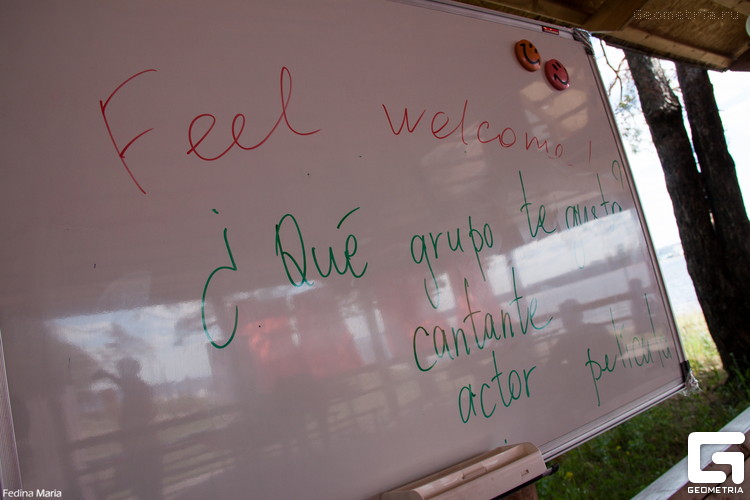 Geometria.ru
Feel welcome!
¿Qué grupo te gusta?
cantante
actor película
Fedina Maria
GEOMETRIA